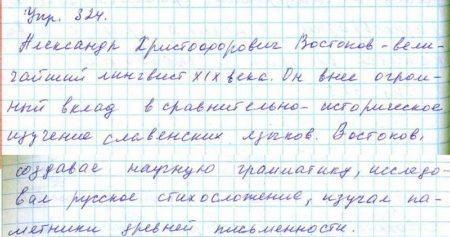 Упр. 324.
Александр Христофорович Востоков - вели-
чайший лингвист XIX века. Он внес огром-
ный вклад в сравнительно-историческое
изучение славенских языков. Востоков,
создавае научную грамматику, исследо-
вал русское стихосложение, изучал па-
метники древней письменности.